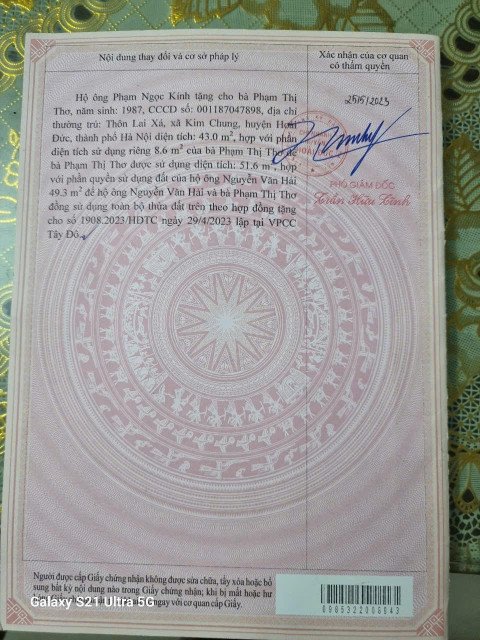 Nội dung thay đổi và cơ sở pháp lý
Xác nhận của cơ quan
có thẩm quyền
Hộ ông Phạm Ngọc Kính tặng cho bà Phạm Thị
Thơ, năm sinh: 1987, CCCD số: 001187047898, địa chỉ
thường trú: Thôn Lai Xá, xã Kim Chung, huyện Hoài
Đức, thành phố Hà Nội diện tích: 43.0 m², hợp với phần
diện tích sử dụng riêng 8.6 m² của bà Phạm Thị Thơ để
bà Phạm Thị Thơ được sử dụng diện tích: 51.6 m², hợp
với phần quyền sử dụng đất của hộ ông Nguyễn Văn Hải
49.3 m² để hộ ông Nguyễn Văn Hải và bà Phạm Thị Thơ
đồng sử dụng toàn bộ thửa đất trên theo hợp đồng tặng
cho số 1908.2023/HĐTC ngày 29/4/2023 lập tại VPCC
Tây Đô.
25/5/2023
PHÓ GIÁM ĐỐC
Trần Hữu Tình
Người được cấp Giấy chứng nhận không được sửa chữa, tẩy xóa hoặc bổ
sung bất kỳ nội dung nào trong Giấy chứng nhận; khi bị mất hoặc hư
ngay với cơ quan cấp Giấy.
Galaxy S21 Ultra 5G